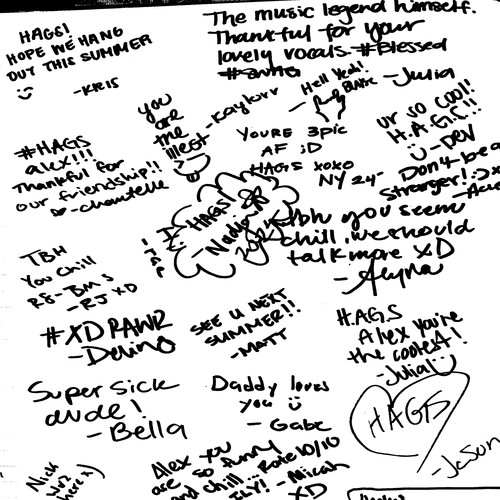 HAGS!
HOPE WE HANG
OUT THIS SUMMER
-KRIS
The music legend himself.
Thankful for your
lovely vocals. #Blessed
-Julia
Hell Yeah!
you
are
the
illest
-Kaylori
YOURE 3pic
AF ;D
HAGS xoxo
NY 24-
ur so cool!
H.A.G.S!!
-DEV
Don't be a
stranger! :DX
#HAGS
alex!!!
Thankful for
our friendship!!
-chantelle
HAGS!
Nadja
tbh you seem
chill, we should
talk more XD
-Alyna
TBH
You chill
R8-BMS
-RJ XD
#XD RAWR
SEE U NEXT
SUMMER!!
-MATT
H.A.G.S
Alex you're
the coolest!
-Julia
Super sick
dude!
-Bella
Daddy loves
you
-Gabe
HAGS
-Jason
Nick
wuz
here
Alex you
are so funny
and chill. Rate 10/10
ILY! -Micah
XD